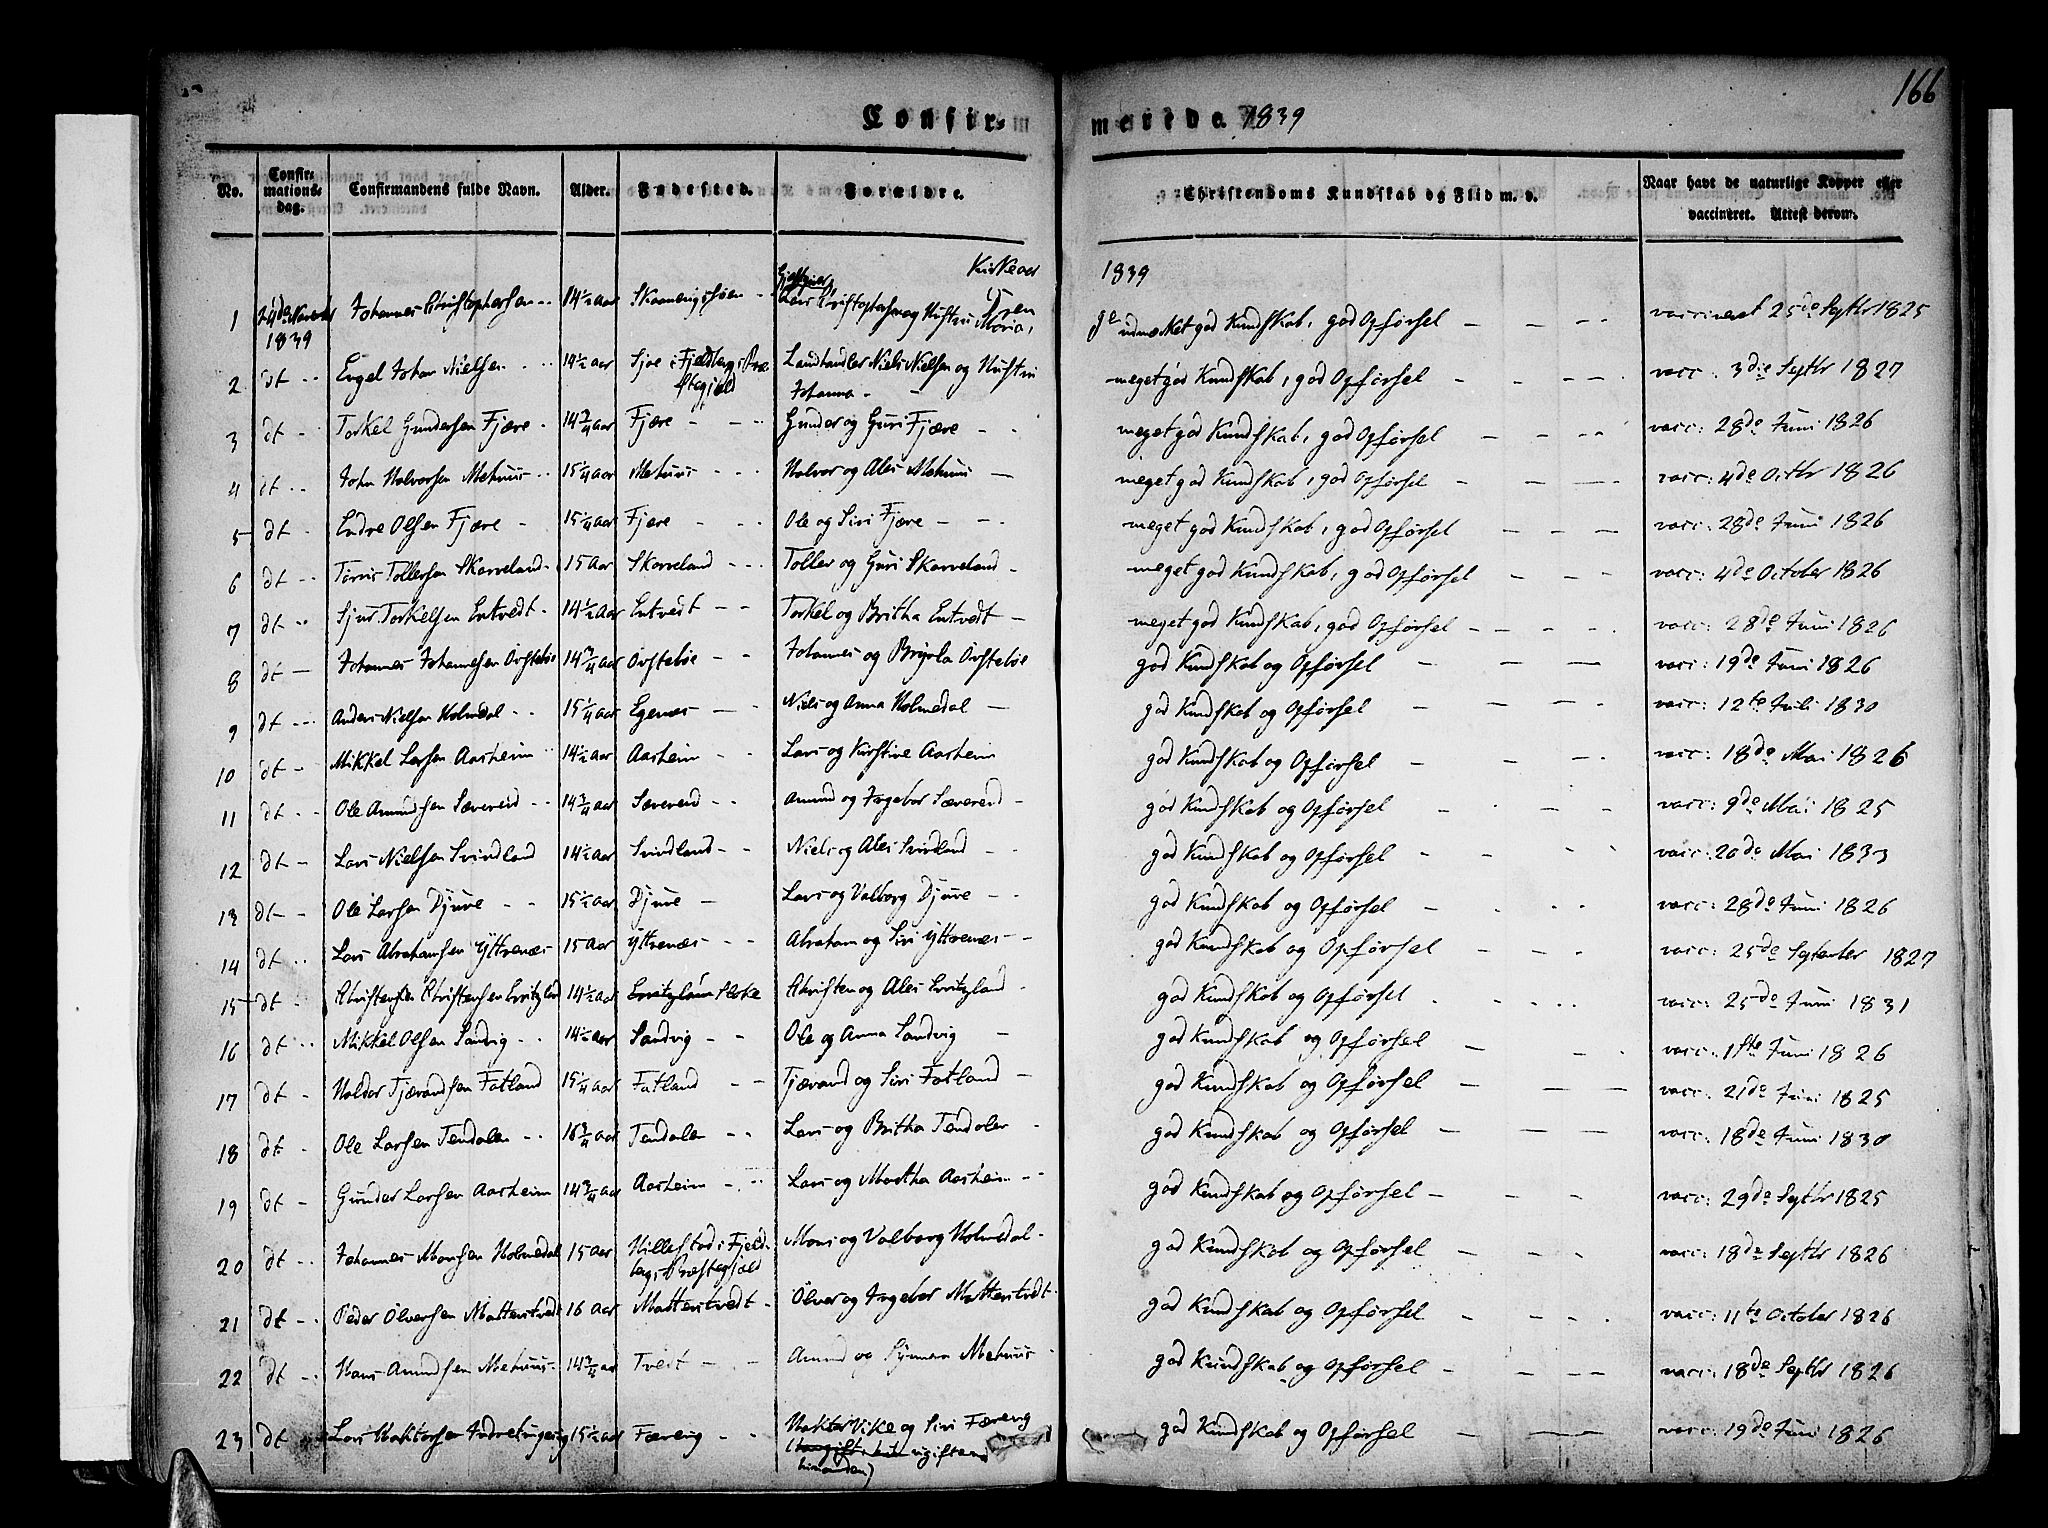 166
Confirmerede. 1839
No. Confirmationsdag. Confirmandens fulde Navn. Alder. Fødested. Forældre. Christendoms Kundskab og Flid m. v. Naar havt de naturlige Kopper eller vaccineret. Attest derom.
Kirkeaar 1839
1 24de Novembr 1839 Johannes Christophersen 14½ aar Lars Christophersen og Hustru Maria, udmærket god Kundskab, god Opførsel vaccineret 25de Septbr 1825
2 dt Engel Johan Nielsen 14½ aar Sjoe i Fjeldbergs Præstegjeld Landhandler Niels Nielsen og Hustru Johanna meget god Kundskab, god Opførsel vacc: 3die Septbr 1827
3 dt Torkel Gundersen Fjære 14¾ aar Fjære Gunder og Guri Fjære meget god Kundskab, god Opførsel vacc: 28de Juni 1826
4 dt John Halvorsen Mehuus 15¼ aar Mehuus Halvor og Ales Mehuus meget god Kundskab, god Opførsel vacc: 4de Octbr 1826
5 dt Endre Olsen Fjære 15¼ aar Fjære Ole og Siri Fjære meget god Kundskab, god Opførsel vacc: 28de Juni 1826
6 dt Tørris Tollersen Skarveland 15 aar Skarveland Toller og Guri Skarveland meget god Kundskab, god Opførsel vacc: 4de October 1826
7 dt Sjur Torkelsen Entvedt 14½ aar Entvedt Torkel og Britha Entvedt meget god Kundskab, god Opførsel vacc: 28de Juni 1826
8 dt Johannes Johannesen Østebøe 14¾ aar Johannes og Østebøe god Kundskab og Opførsel vacc: 19de Juni 1826
9 dt Anders Nielsen Holmedal 15¼ aar Egenæs Niels og Anna Holmedal god Kundskab og Opførsel vacc: 12te Juli 1830
10 dt Mikkel Larsen Aasheim 14½ aar Aasheim Lars og Kirstine Aasheim god Kundskab og Opførsel vacc: 18de Mai 1826
11 dt Ole Amundsen Sævereid 14¾ aar Sævereid Amund og Ingebor Sævereid god Kundskab og Opførsel vacc: 9de Mai 1825
12 dt Lars Nielsen Svindland 14½ aar Svindland Niels og Ales Svindland god Kundskab og Opførsel vacc: 20de Mai 1833
13 dt Ole Larsen Djuve 15½ aar Djuve Lars og Valborg Djuve god Kundskab og Opførsel vacc: 28de Juni 1826
14 dt Lars Abrahamsen Yttrenæs 15 aar Yttrenæs Abraham og Siri Yttrenæs god Kundskab og Opførsel vacc: 25de September 1827
15 dt Christen Christensen 14½ aar Christen og Ales god Kundskab og Opførsel vacc: 25de Juni 1831
16 dt Mikkel Olsen Sandvig 14½ aar Sandvig Ole og Anna Sandvig god Kundskab og Opførsel vacc: 1ste Juni 1826
17 dt Haldor Tjærandsen Fatland 15¼ aar Fatland Tjærand og Siri Fatland god Kundskab og Opførsel vacc: 21de Juni 1825
18 dt Ole Larsen Tendalen 16¾ aar Tendalen Lars og Britha Tendalen god Kundskab og Opførsel vacc: 18de Juni 1830
19 dt Gunder Larsen Aasheim 14¾ aar Aasheim Lars og Martha Aasheim god Kundskab og Opførsel vacc: 29de Septbr 1825
20 dt Johannes Monsen Holmedal 15 aar Hillestad i Fjeldbergs Præstegjeld Mons og Valborg Holmedal god Kundskab og Opførsel vacc: 18de Septbr 1826
21 dt Peder Ølversen Matterstvedt 16 aar Matterstvedt Ølver og Ingebor Matterstvedt god Kundskab og Opførsel vacc: 11te October 1826
22 dt Hans Amundsen Mehuus 14¾ aar Tvedt Amund og Synneva Mehuus god Kundskab og Opførsel vacc: 18de Septbr 1826
23 dt Lars 15½ aar Færevig Vike og Siri Færevig god Kundskab og Opførsel vacc: 19de Juni 1826